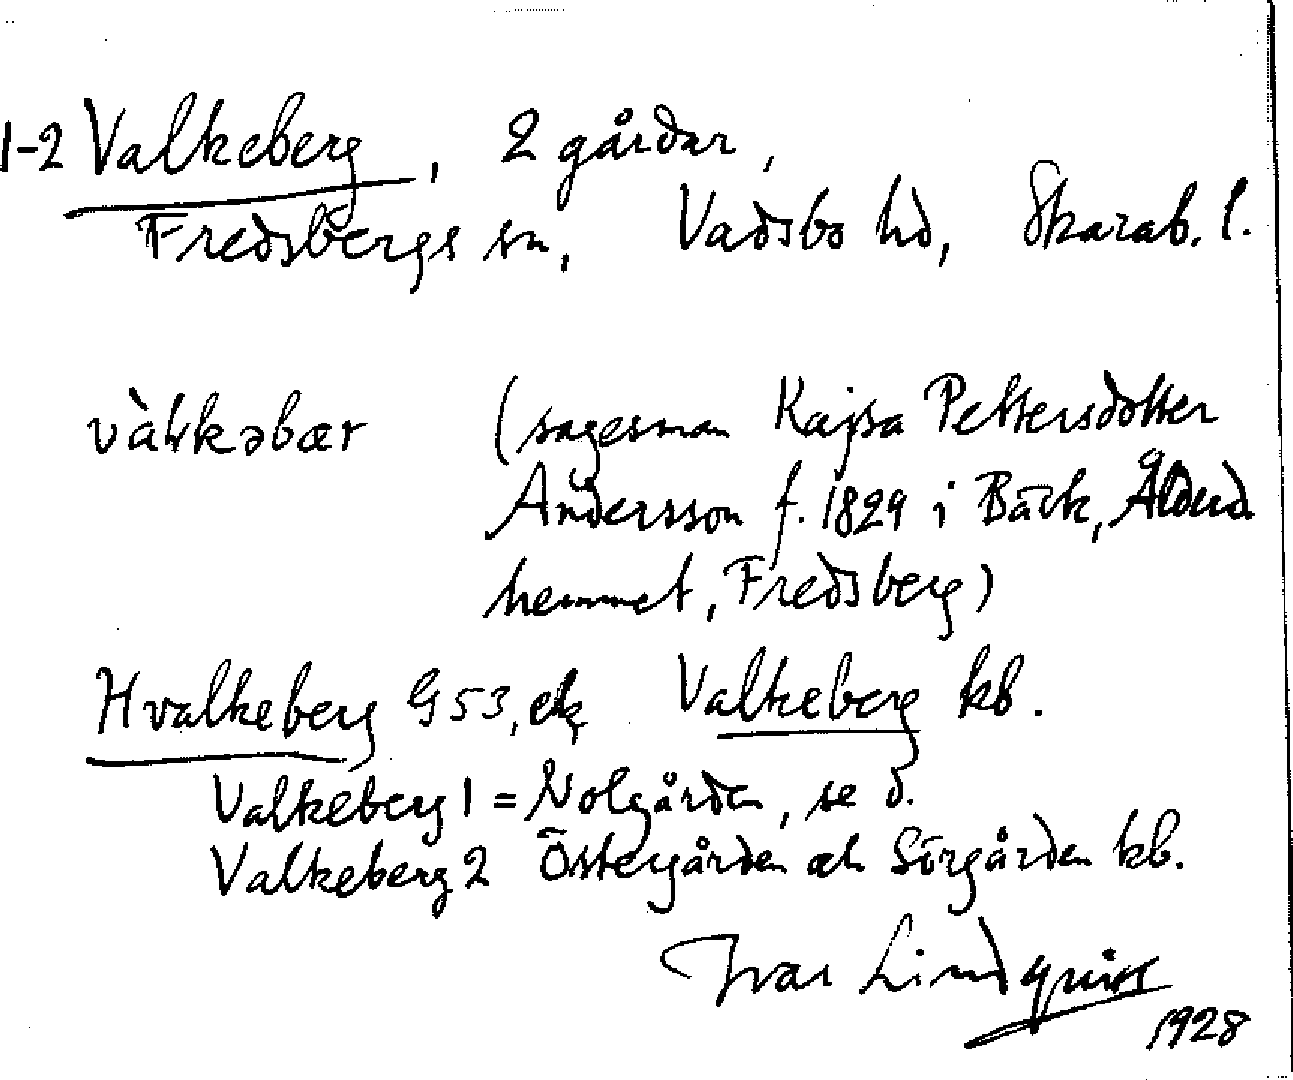 1-2 Valkeberg, 2 gårdar,
Fredsbergs sn, Vadsbo hd, Skarab. l.
vàɫkəbær (sagesman Kajsa Pettersdotter
Andersson f. 1829 i Bäck, Ålderd
hemmet, Fredsberg)
Hvalkeberg G53, ek Valkeberg kb.
Valkeberg 1 = Nolgården, se d.
Valkeberg 2 Östergården och Sörgården kb.
Ivar Lindquist
1928